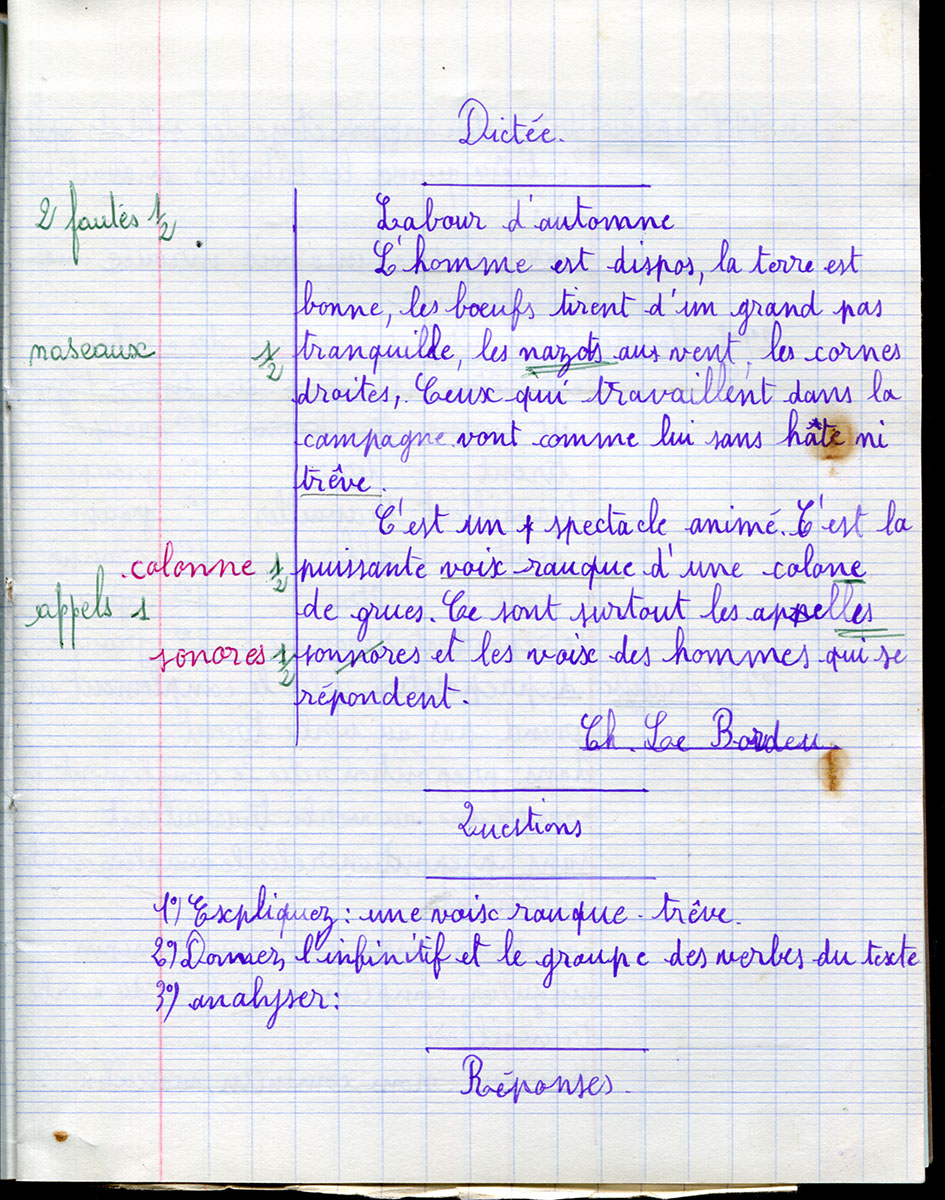 Dictée.
2 fautes 1/2
Labour d'automne
L'homme est dispos, la terre est
bonne, les bœufs tirent d'un grand pas
naseaux 1/2 tranquille, les nazots aux vent, les cornes
droites,. Ceux qui travaillent dans la
campagne vont comme lui sans hâte ni
trêve.
C'est un spectacle animé. C'est la
colonne 1/2 puissante voix rauque d'une colone
appels 1 de grues. Ce sont surtout les appelles
sonores 1/2 sonnores et les voix des hommes qui se
répondent.
Ch. Le Bordeu.
Questions
1º) Expliquez : une voix rauque - trêve.
2º) Donner, l'infinitif et le groupe des verbes du texte
3º) analyser :
Réponses.